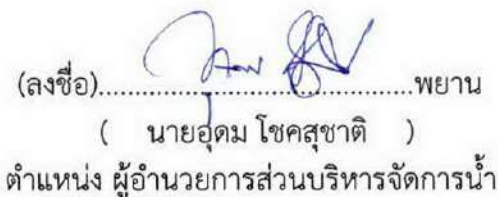 (ลงชื่อ)........................................พยาน
( นายอุดม โชคสุชาติ )
ตำแหน่ง ผู้อำนวยการส่วนบริหารจัดการน้ำ